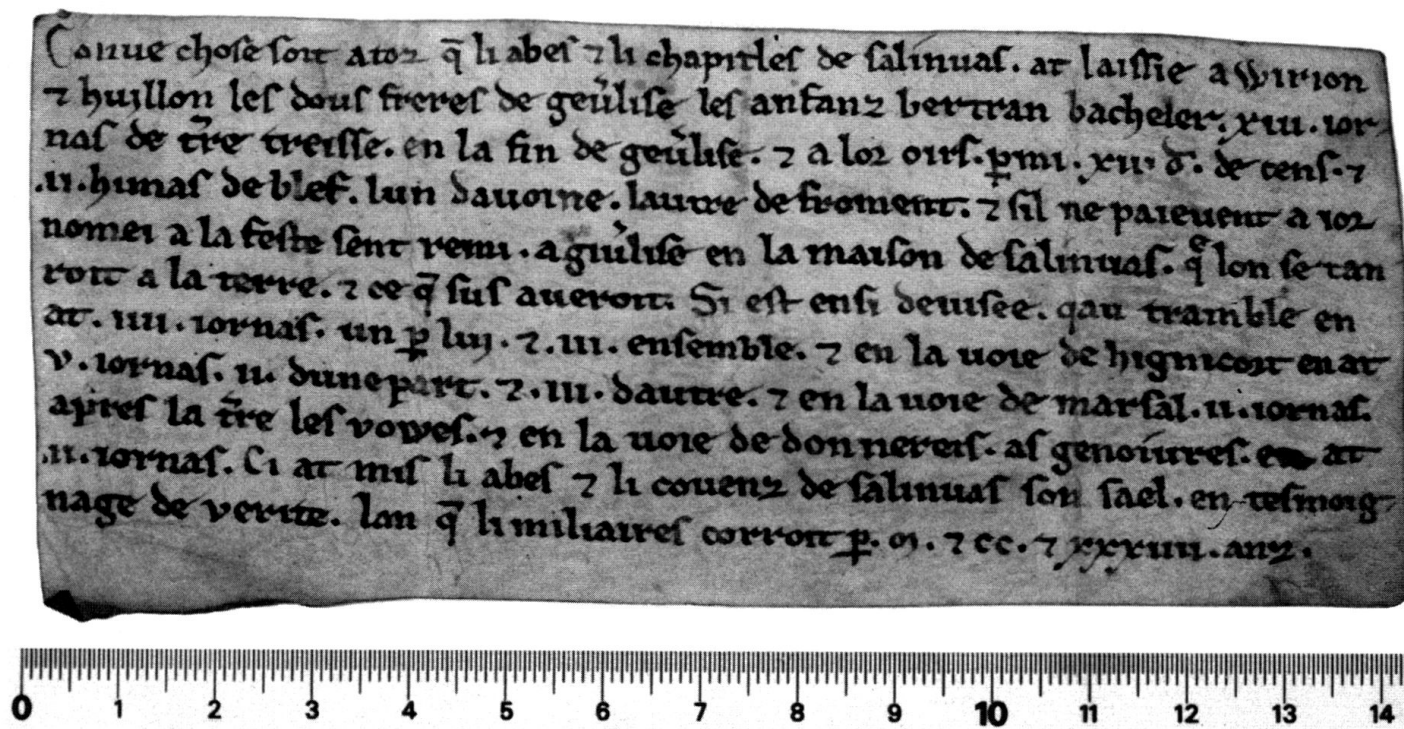 Conue chose soit a toz q̄ li abes ⁊ li chapitles de salinuas. at laissie a wirion
⁊ huillon les dous freres de geu̓lise les anfanz bertran bacheler. xiii. ior
nas de t̄re treisse. en la fin de geu̓lise. ⁊ a lor oirs. ꝑmi. xii. d̄. de cens. ⁊
.ii. himas de blef. lun dauoine. lautre de froment. ⁊ sil ne paieuent a ior
nomei a la feste sent remi. a giu̓lise en la maison de salinuas. qͤ lon se tan
roit a la terre. ⁊ ce q̄ sus aueroit. Si est ensi deuisee. qau tramble en
at. iiii. iornas. un ꝑ lui. ⁊. iii. ensemble. ⁊ en la uoie de hignicort en at
v. iornas. ii. dune part. ⁊. iii. dautre. ⁊ en la uoie de marsal. ii. iornas.
apres la t̄re les vowes. ⁊ en la uoie de donnereis. as genoiures. en at
.ii. iornas. Ci at mis li abes ⁊ li couenz de salinuas son sael. en tesmoig
nage de verite. lan q̄ li miliaires corroit ꝑ. m. ⁊ cc. ⁊ xxxiiii. anz.
0 1 2 3 4 5 6 7 8 9 10 11 12 13 14